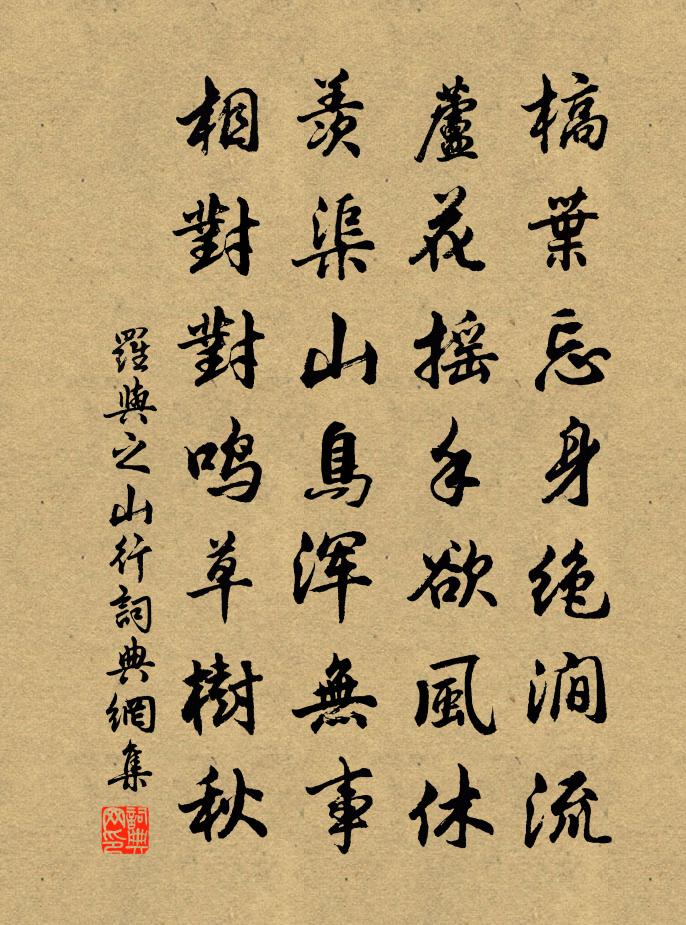 槁葉忘身絶澗流
蘆花摇手欲風休
羨渠山鳥渾無事
相對對鳴草樹秋
羅與之山行詞典網集
詞典網印